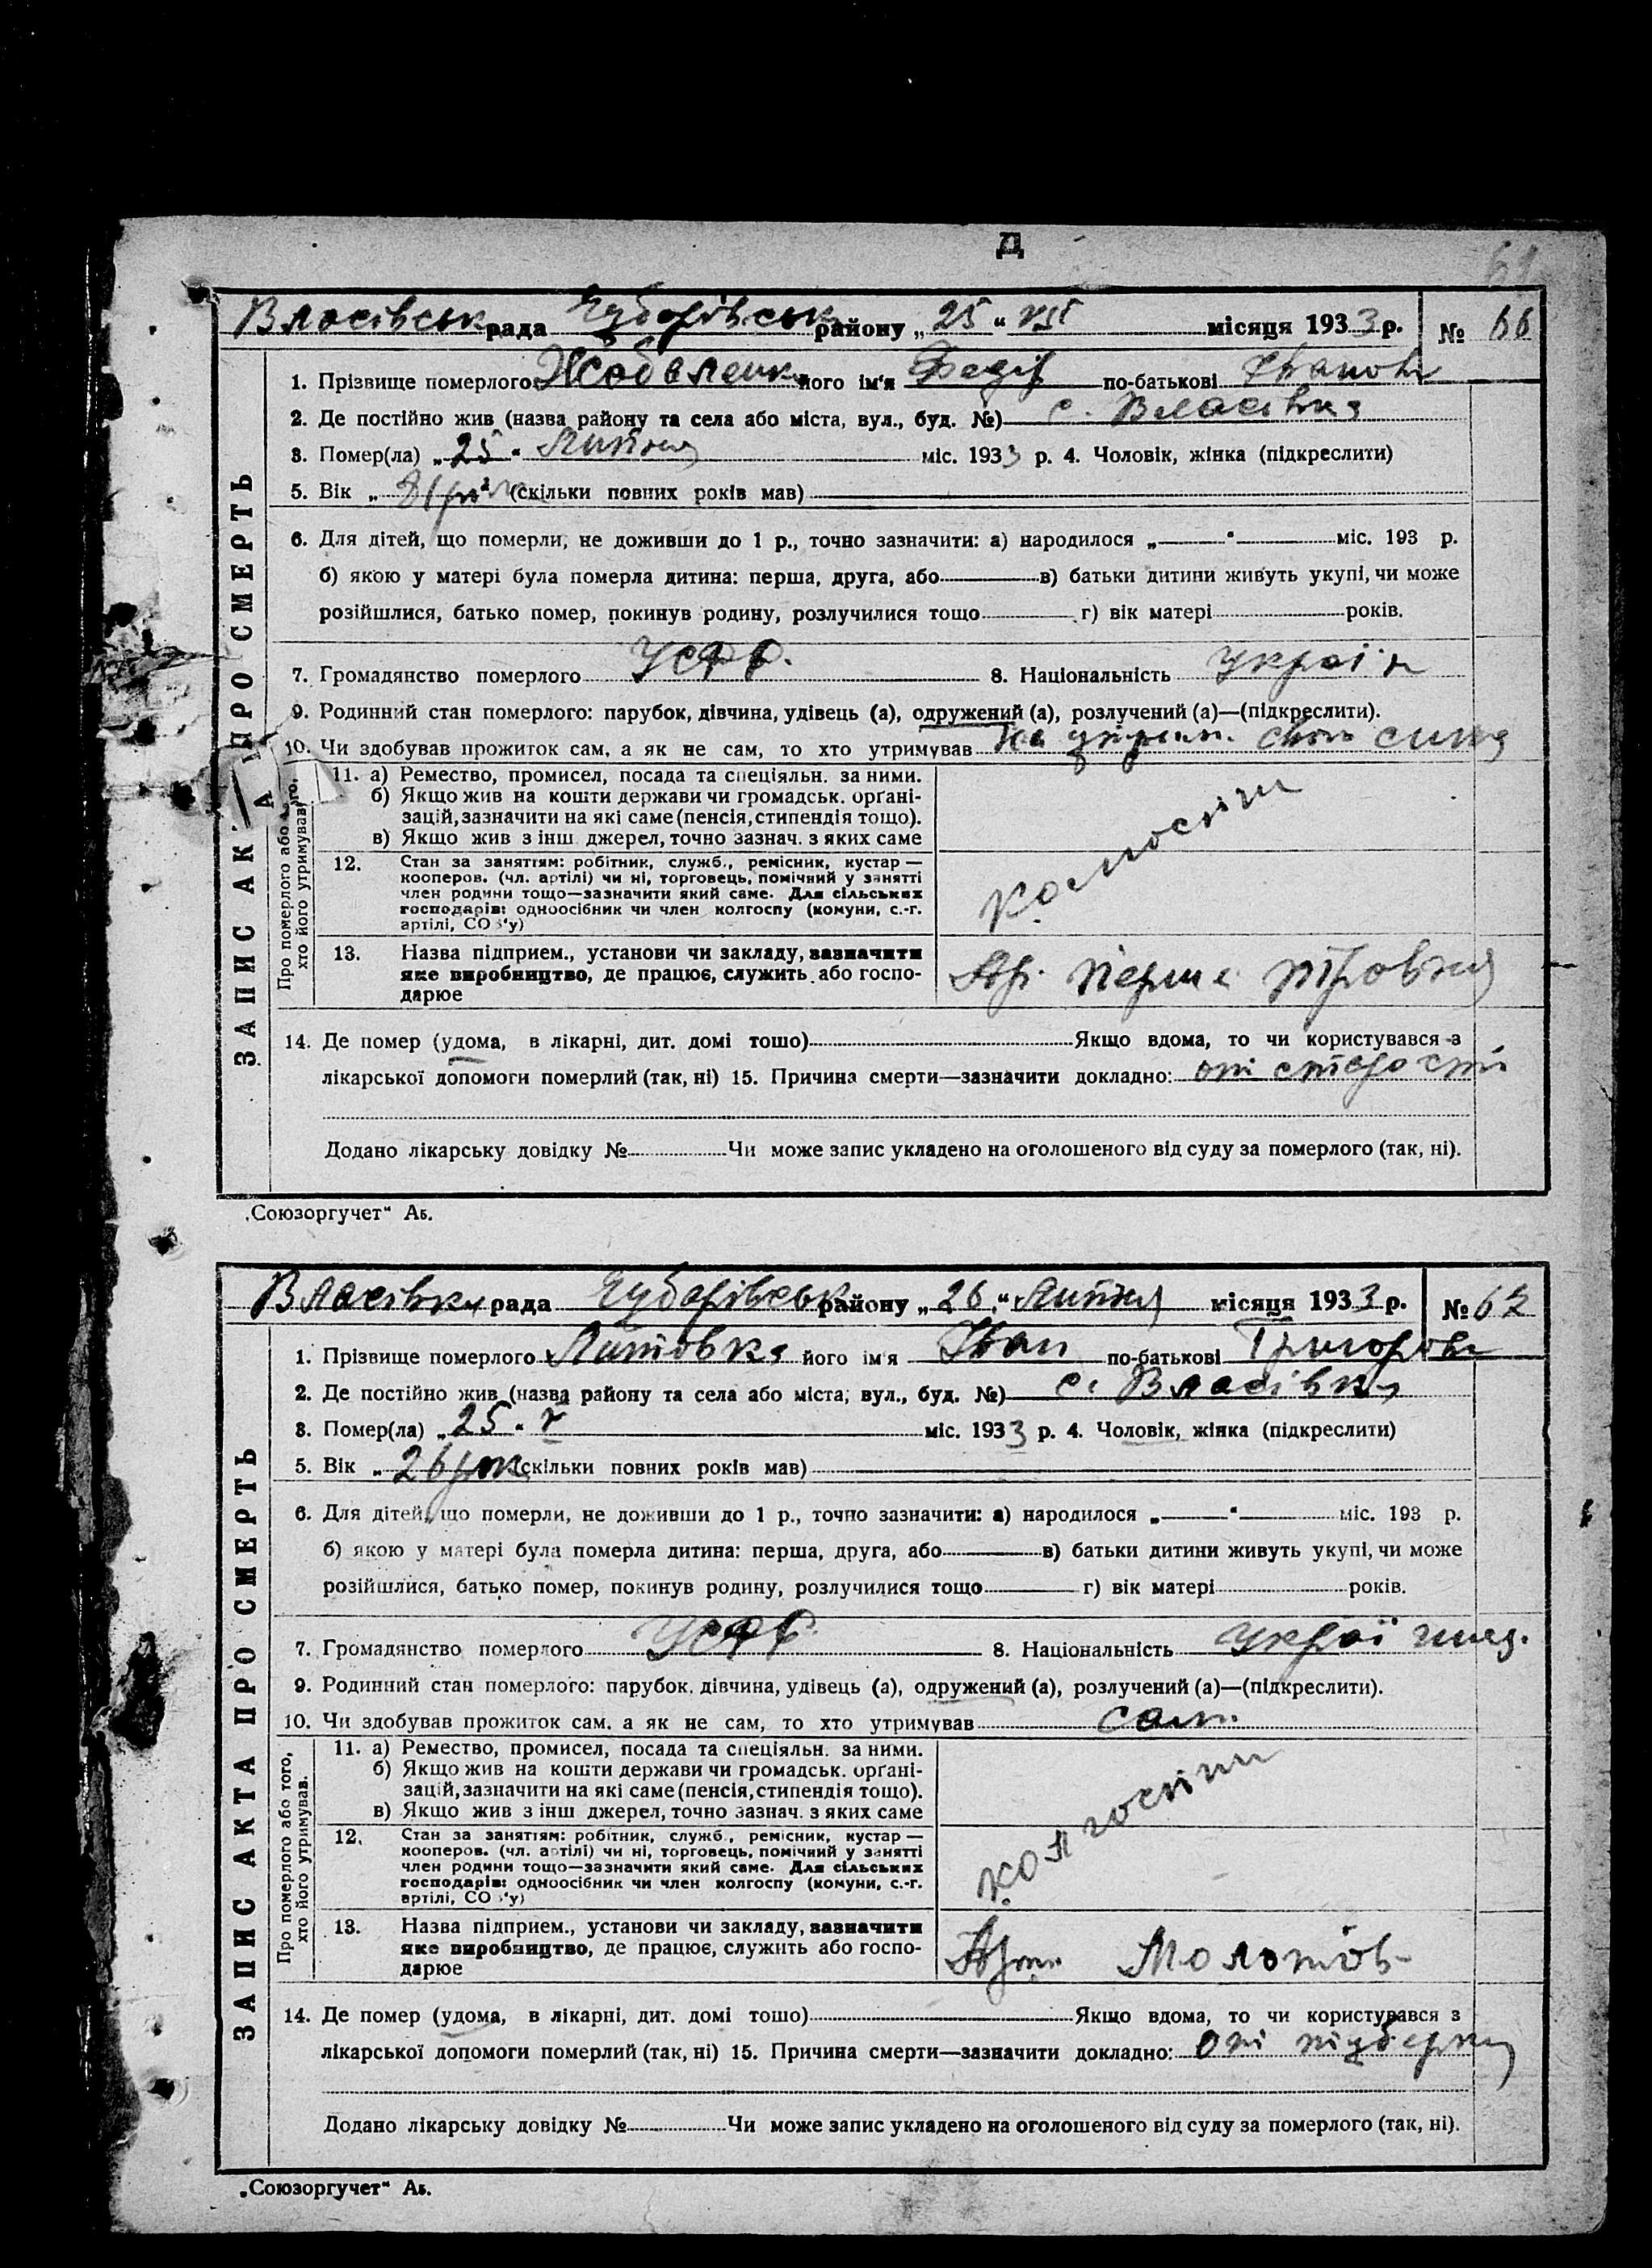 Д
61
Власівськ рада Чубарівськ району „25“ VII місяця 1933 р. № 66
1. Прізвище померлого його ім'я Федір по-батькові Іванов
2. Де постійно жив (назва району та села або міста, вул., буд. №) с. Власівка
3. Помер(ла) „25“ Липня міс. 1933 р. 4. Чоловік, жінка (підкреслити)
5. Вік „ (скільки повних років мав)
6. Для дітей, що померли, не доживши до 1 р., точно зазначити: а) народилося „ “ міс. 193 р.
б) якою у матері була померла дитина: перша, друга, або в) батьки дитини живуть укупі, чи може
розійшлися, батько помер, покинув родину, розлучилися тощо г) вік матері років.
7. Громадянство померлого УСРР. 8. Національність україн
9. Родинний стан померлого: парубок, дівчина, удівець (а), одружений (а), розлучений (а)—(підкреслити).
10. Чи здобував прожиток сам, а як не сам, то хто утримував На утрим. свого сина
11. а) Ремество, промисел, посада та спеціяльн. за ними.
б) Якщо жив на кошти держави чи громадськ. орґані-
зацій, зазначити на які саме (пенсія, стипендія тощо).
в) Якщо жив з інш джерел, точно зазнач. з яких саме
12. Стан за заняттям: робітник, служб., ремісник, кустар —
кооперов. (чл. артілі) чи ні, торговець, помічний у занятті
член родини тощо—зазначити який саме. Для сільських
господарів: одноосібник чи член колгоспу (комуни, с.-г.
артілі, СО у)
колгоспн
13. Назва підприєм., установи чи закладу, зазначити
яке виробництво, де працює, служить або госпо-
дарює
Ар. Перше Травня
14. Де помер (удома, в лікарні, дит. домі тощо) Якщо вдома, то чи користувався з
лікарської допомоги померлий (так, ні) 15. Причина смерти—зазначити докладно: от старости
Додано лікарську довідку № Чи може запис укладено на оголошеного від суду за померлого (так, ні).
ЗАПИС АК А ПРО СМЕРТЬ
Про померлого або того,
хто його утримував
„Союзоргучет“ Аб.
Власівськ рада Чубарівськ району „26“ Липня місяця 1933 р. № 62
1. Прізвище померлого Литовка його ім'я Іван по-батькові Григоров
2. Де постійно жив (назва району та села або міста, вул., буд. №) с. Власівка
3. Помер(ла) „25“ міс. 1933 р. 4. Чоловік, жінка (підкреслити)
5. Вік „26 рок (скільки повних років мав)
6. Для дітей, що померли, не доживши до 1 р., точно зазначити: а) народилося „ “ міс. 193 р.
б) якою у матері була померла дитина: перша, друга, або в) батьки дитини живуть укупі, чи може
розійшлися, батько помер, покинув родину, розлучилися тощо г) вік матері років.
7. Громадянство померлого УСРР 8. Національність
9. Родинний стан померлого: парубок, дівчина, удівець (а), одружений (а), розлучений (а)—(підкреслити).
10. Чи здобував прожиток сам, а як не сам, то хто утримував сам.
11. а) Ремество, промисел, посада та спеціяльн. за ними.
б) Якщо жив на кошти держави чи громадськ. орґані-
зацій, зазначити на які саме (пенсія, стипендія тощо).
в) Якщо жив з інш джерел, точно зазнач. з яких саме
12. Стан за заняттям: робітник, служб., ремісник, кустар —
кооперов. (чл. артілі) чи ні, торговець, помічний у занятті
член родини тощо—зазначити який саме. Для сільських
господарів: одноосібник чи член колгоспу (комуни, с.-г.
артілі, СО у)
колгоспн
13. Назва підприєм., установи чи закладу, зазначити
яке виробництво, де працює, служить або госпо-
дарює
Арт. Молотов-
14. Де помер (удома, в лікарні, дит. домі тощо) Якщо вдома, то чи користувався з
лікарської допомоги померлий (так, ні) 15. Причина смерти—зазначити докладно: от
Додано лікарську довідку № Чи може запис укладено на оголошеного від суду за померлого (так, ні).
ЗАПИС АКТА ПРО СМЕРТЬ
Про померлого або того,
хто його утримував.
„Союзоргучет“ Аб.